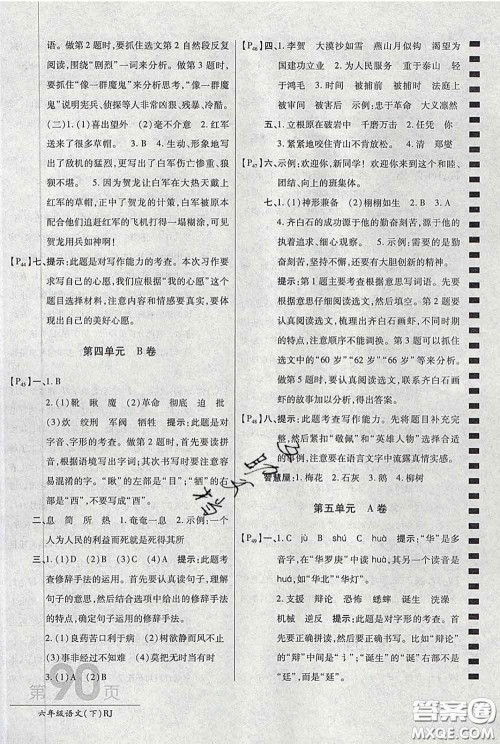 语。做第2题时，要抓住选文第2自然段反复
阅读，围绕"剧烈"一词来分析。做第3题时，
要抓住"像一群魔鬼"来分析思考，"像一群
魔鬼"说明宪兵、侦探等人非常凶狠、残暴、冷酷。
(二)1.(1)喜出望外 (2)毫不介意 2.红军
看到了很多草帽。 3.B 4.生动、形象地写
出了敌机的猖狂。 5.更写出了白军伤亡惨重、狼
狈不堪。 6.因为贺龙让白军在大热天戴上
红军的草帽，迷惑了敌军，白军就被原本
配合他们追赶红军的飞机打得一塌糊涂，可见
贺龙用兵如神啊！
【P44】七、提示：此题是对写作能力的考查。本次习作要
求写自己的心愿，我们应根据"我的心愿"这个
题目选择材料，注意内容和情感要真实，要体现
自己的美好心愿。
第四单元 B卷
【P45】一、1.B
2.(1)靴 瞅 魔 (2)革命 彻底 迫 批
(3)炊 绞刑 军阀 牺牲 提示：此题是对
字音、字形的考查。做第1题时，首先要读
准字音，然后选择。其次书写时要注意不要
混淆的字。"瞅"的部首是"目"；"牺"的右
部是"西"，不要写成"酉"。
二、息 简 所 热 1.奄奄一息 2.示例：一个
人为人民的利益而死就是死得其所
三、1.(1) (2)D (3)C (4)A 提示：此题考查
修辞手法的运用。首先要认真读句子，理解
句子的意思，然后结合选项中给出的修辞手法
的特点，确定句子运用的修辞手法。
2.(1)良药苦口利于病 (2)树欲静而风不止
(3)事非经过不知难 (4)无私才能无畏
第90页
六年级语文(下)RJ
【P46】四、1.李贺 大漠沙如雪 燕山月似钩 渴望为
国建功立业 2.为人民服务 重于泰山 轻
于鸿毛 3.时间 被捕前 被捕时 被捕后
法庭上 被害后 示例：忠于革命 大义凛然
五、1.立根原在破岩中 千磨万击 2.任凭 你
3.紧紧地咬住青山不放松 4.清 郑燮
【P47】六、示例：欢迎你，新同学！欢迎你来到这个和睦、
团结、向上的班集体。
七、1.(1)神形兼备 (2)栩栩如生 2.B C
3.A 4.齐白石的成功源于他的勤奋刻苦，源于他的
执着追求、细心观察。 5.示例：我们要有他的勤
奋刻苦精神，更要有大胆创新的精神。
提示：第1题主要考查根据意思写词语。首先
根据意思仔细阅读选文，然后填空。第2题要
认真阅读选文，梳理齐白石画虾的几个不同时
期的特点，注意顺序不能颠倒。第3题可以抓住
选文中的"60岁""62岁""66岁"等分析。
做第5题时，要认真阅读选文，联系齐白石画虾
的事例进行分析。
【P48】八、提示：此题考查写作能力。先将题目补充完
整，然后紧扣"敬佩"和"英雄人物"选择合适
的事例，注意在语言文字中流露真情实感。
智慧屋：1.梅花 2.石灰 3.鹅 4.柳树
第五单元 A卷
【P49】一、1.cì jù jù huá 提示："华"是多
音字，在"华罗庚"中读huà，其另一个读音是
huá，如"华北""华灯"。
2.支援 辩论 恐怖 诞生 蚯蚓 洗澡
机械 逆反 提示：此题考查同学们看拼音
写词语的能力。注意有些词语的写法。比如
"辩论"的"辩"中间是"讠"；"诞生"的"诞"右边
是"延"，而不是"廷"。